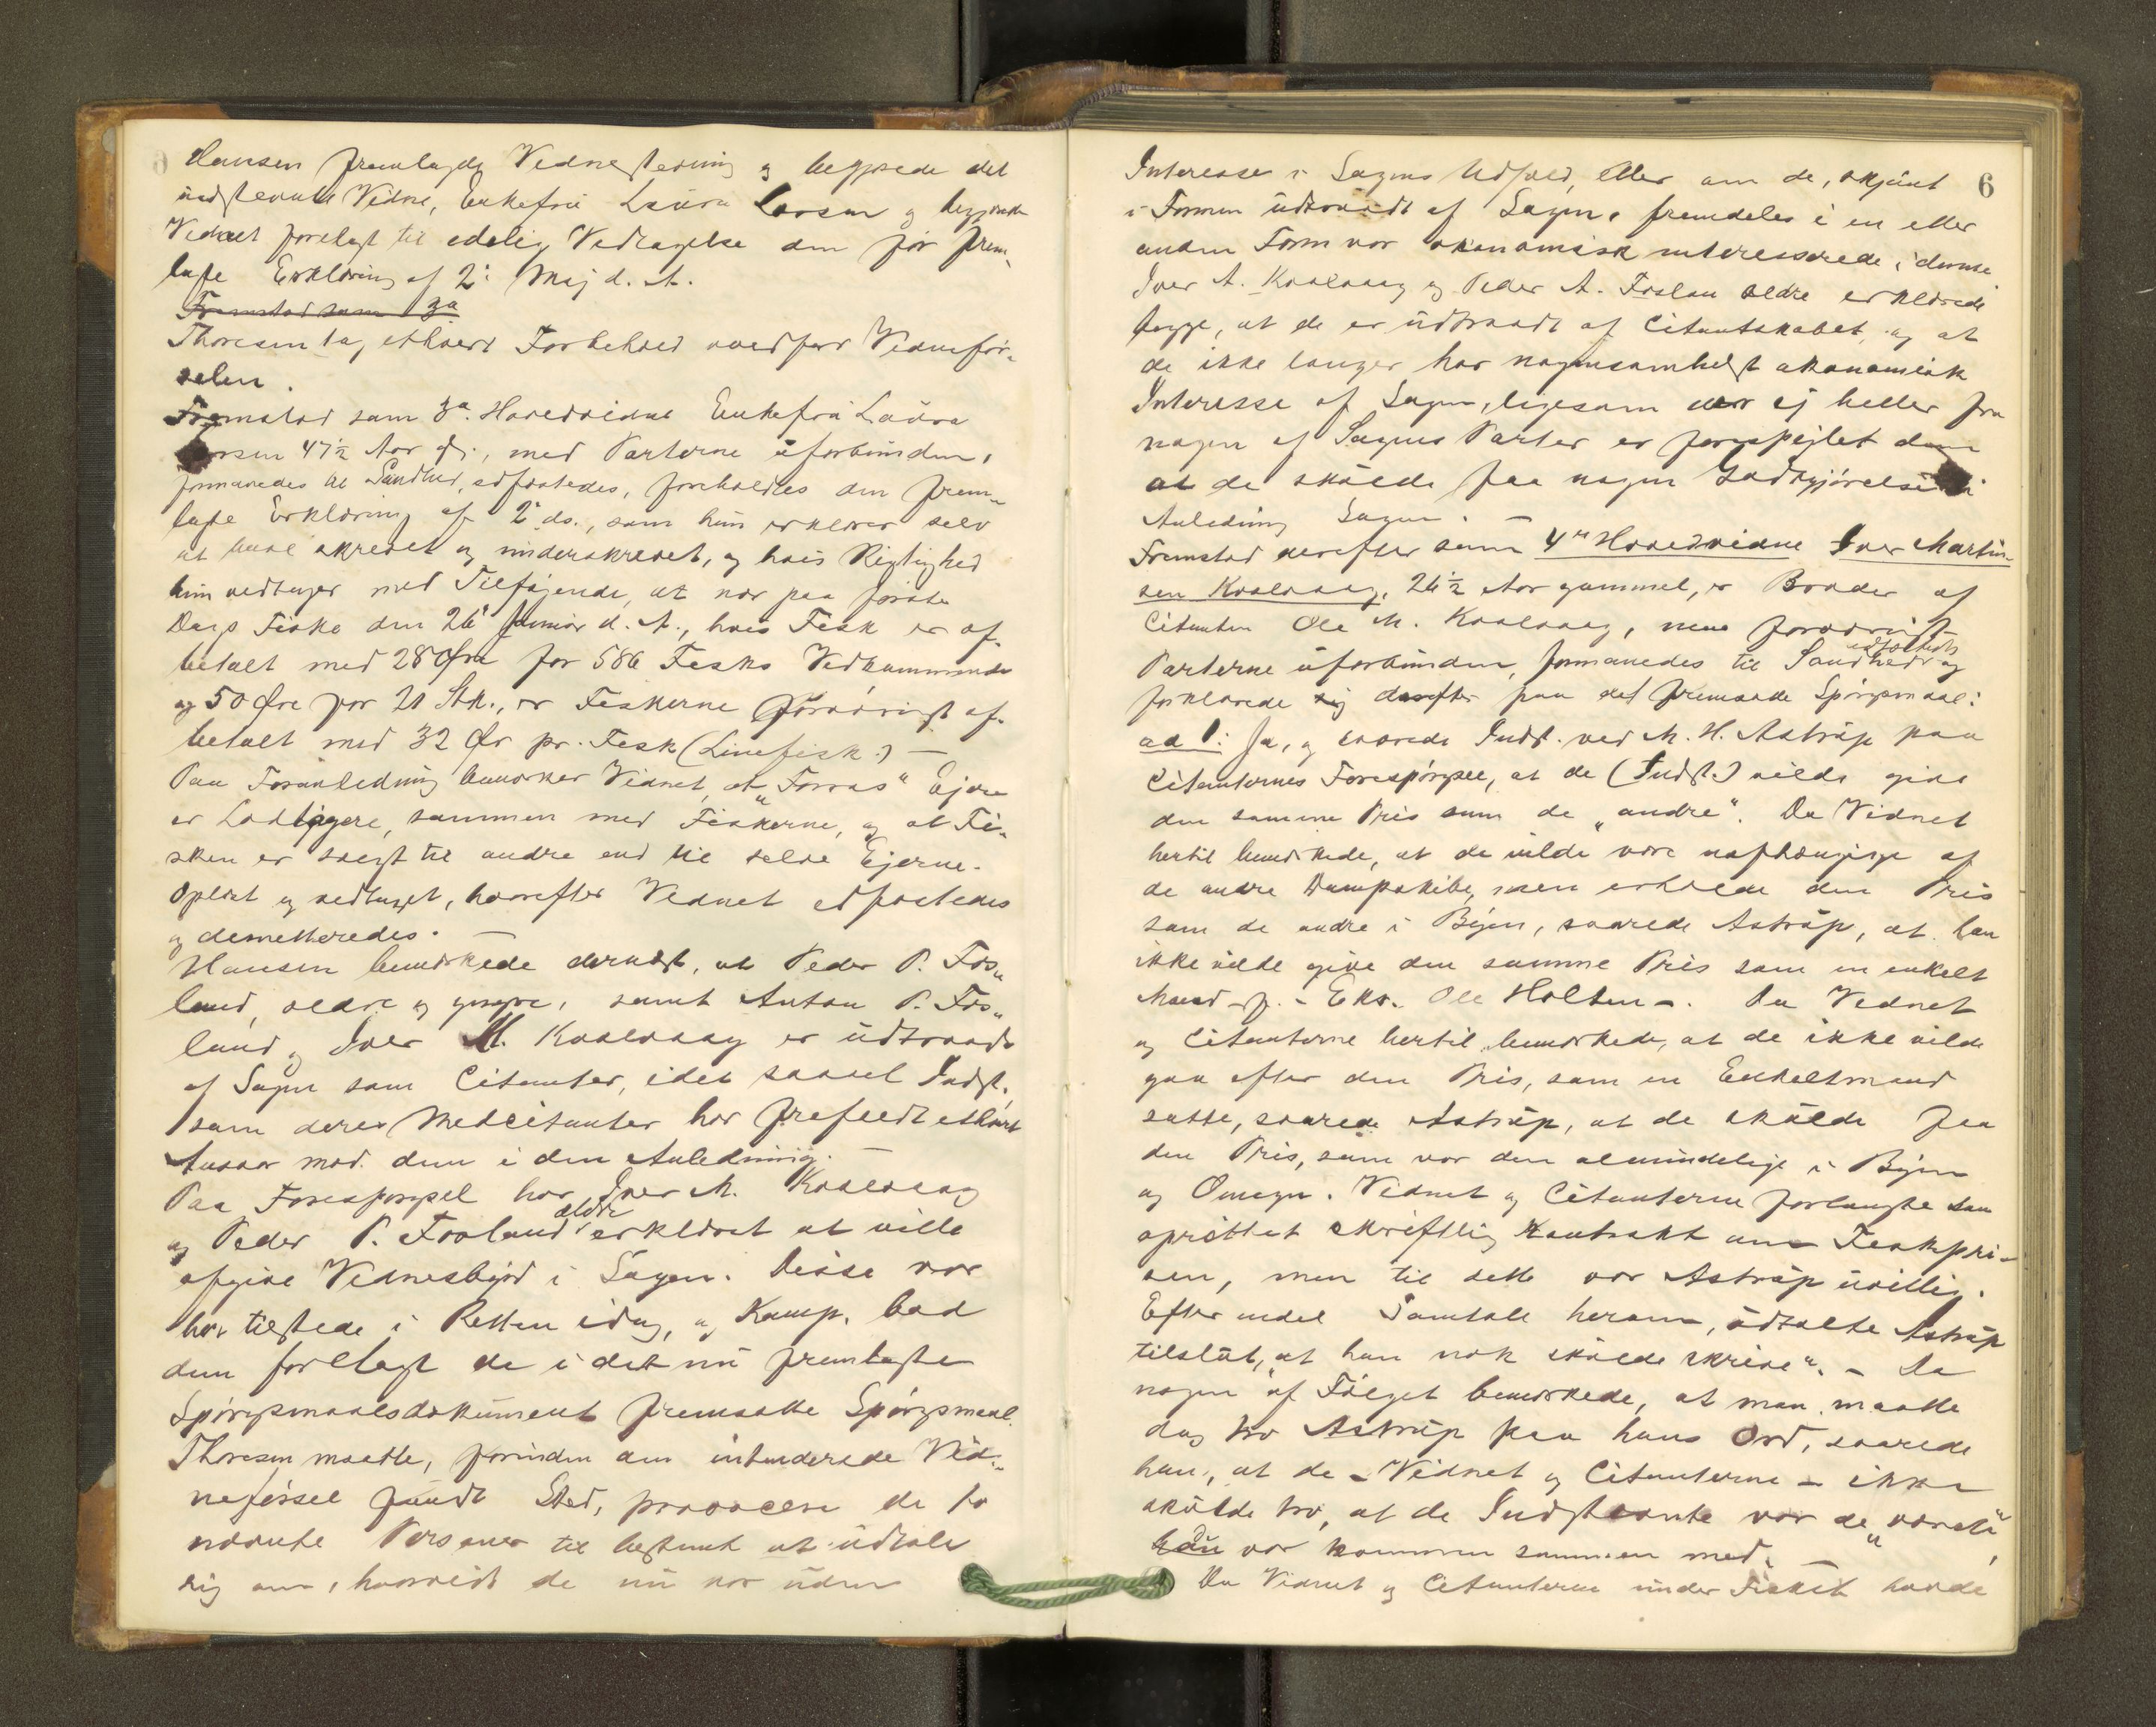 Hansen fremlagde Vidnestevning og begjærede det
indstevnte Vidne, Enkefru Laura Larsen og begjærede
Vidnet forelagt til edelig Vedtagelse den før frem-
lagte Erklæring af 2. Maj d. A.
Fremstod som 3a
Thoresen tog ethvert Forbehold overfor Vidneför-
selen.
Fremstod som 3a. Hovedvidne Enkefru Laura
Larsen 47½ Aar gl., med Parterne uforbunden,
formanedes til Sandhed, edfæstedes, foreholdtes den frem-
lagte Erklæring af 2. ds., som hun erklærer selv
at have skrevet og underskrevet, og hvis Rigtighed
hun vedtager med Tilføjende, at nor paa første
Dags Fiske den 26 Januar d. A., hvis Fisk er af-
betalt med 28 Øre for 586 Fisks Vedkommende
og 50 Øre for 21 Stk., er Fiskerne forøvrigt af-
betalt med 32 Øre pr. Fisk (Linefisk.) —
Paa Foranledning bemærker Vidnet, at "Forras" Ejere
er Lodtagere, sammen med Fiskerne, og at Fi-
sken er solgt til andre end til selve Ejerne.
Oplæst og vedtaget, hvorefter Vidnet edfæstedes
og demitteredes. —
Hansen bemærkede dernæst, at Peder P. Fos-
land, ældre og yngre, samt Anton P. Fos-
land og Iver M. Kvalvaag er udtraadt
af Sagen som Citanter, idet saavel Indst.
som deres Medcitanter har frafaldt ethvert
Ansvar mod dem i den Anledning. —
Paa Forespørgsel har Iver M. Kvalvaag
og Peder P. Fosland ældre erklæret at ville
afgive Vidnesbyrd i Sagen. Disse var
her tilstede i Retten idag, og Komp. bad
dem forelagt de i det nu fremlagte
Spørgsmaalsdokument fremsatte Spørgsmaal.
Thoresen maatte, forinden den intenderede Vid-
neførsel fandt Sted, provocere de to
nævnte Personer til bestemt at udtale
sig om, hvorvidt de nu var uden
6
Interesse i Sagens Udfald, eller om de, skjønt
i Formen udtraadt af Sagen, fremdeles i en eller
anden Form var økonomisk interesserede i denne
Iver M. Kvalvaag og Peder A. Foslan ældre erklærede
begge, at de er udtraadt af Citantskabet, og at
de ikke længer har nogensomhelst økonomisk
Interesse af Sagen, ligesom der ej heller fra
nogen af Sagens Parter er forespejlet dem
at de skulde faa nogen Godtgjørelse i
Anledning Sagen. —
Fremstod derefter som 4de Hovedvidne Iver Martin-
sen Kvalvaag, 26½ Aar gammel, er Broder af
Citanten Ole M. Kvalvaag, men forøvrigt
Parterne uforbunden, formanedes til Sandhed edfæstedes og
forklarede sig derefter paa det fremsatte Spørgsmaal:
ad 1: Ja, og svarede Indst. ved M. H. Astrup paa
Citanternes Forespørgsel, at de (Indst.) vilde give
den samme Pris som de "andre". Da Vidnet
hertil bemærkede, at de vilde være uafhængige af
de andre Dampskibe, men erholde den Pris
som de andre i Byen, svarede Astrup, at han
ikke vilde give den samme Pris som en enkelt
Mand - f. - Eks. Ole Holten -. Da Vidnet
og Citanterne hertil bemærkede, at de ikke vilde
gaa efter den Pris, som en Enkeltmand
satte, svarede Astrup, at de skulde faa
den Pris, som var den almindelige i Byen
og Omegn. Vidnet og Citanterne forlangte saa
oprettet skriftlig Kontrakt om Fiskepri-
sen, men til dette var Astrup uvillig.
Efter endel Samtale herom, udtalte Astrup
tilslut, "at han nok skulde skrive". - Da
nogen af Følget bemærkede, at man maatte
dog tro Astrup paa hans Ord, svarede
han, at de - Vidnet og Citanterne - ikke
skulde tro, at de Indstevnte var de "værste",
de var kommen sammen med. —
Da Vidnet og Citanterne under Fisket havde